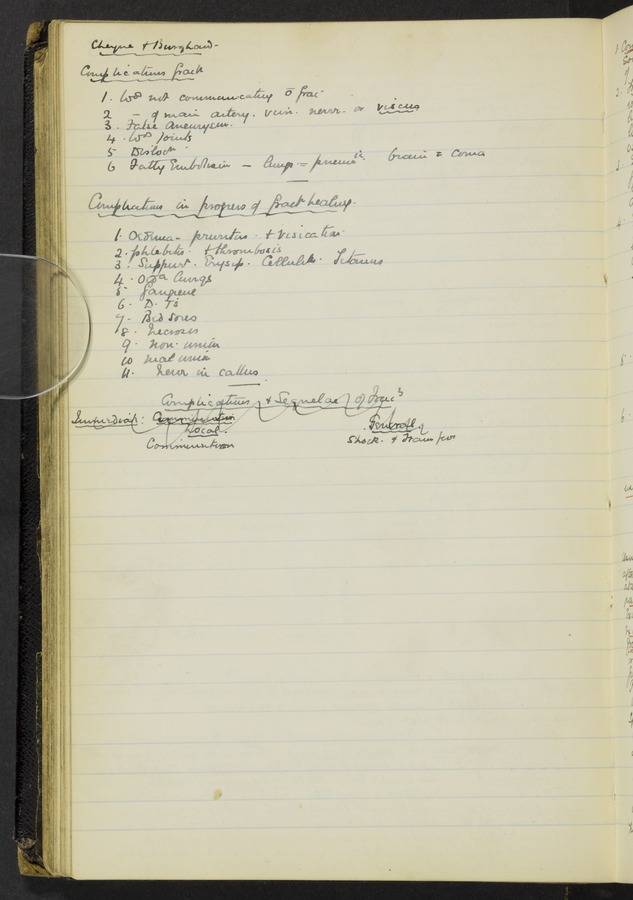 Cheyne & Burghard -
Complications fract
1. Wd not communicating c̄ frac
2 - of main artery. vein. nerve. or viscus
3. False aneurysm.
4. Wd Joints
5 Islocn
6 Fatty Embolism - lungs = pneumic brain = coma
Complications in progress of fract healing.
1. Oedema - pruritus + vesication
2. phlebitis + thrombosis
3. Suppurn. Erysip. Cellulitis. Tetanus
4. Oga lungs
5. gangrene
6. D. Ts
7. Bed sores
8. necrosis
9. non. union
10 mal union
11. nerve in callus
Complications & Sequelae of Fracs
Immediate: Comminution General
Local.
Comminution Shock. &